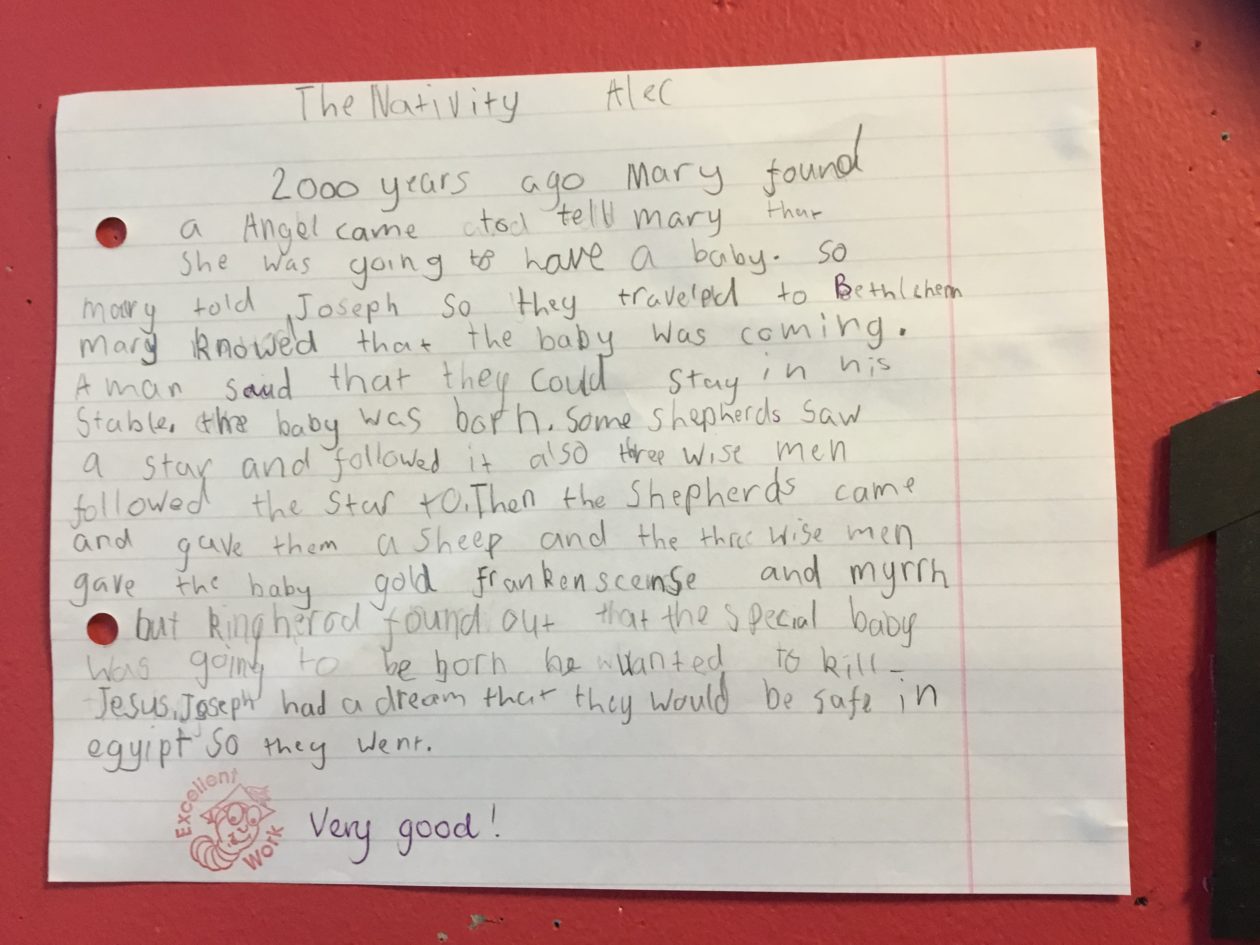 The Nativity Alec
2000 years ago Mary found
a Angel came tell mary that
she was going to have a baby. so
mary told Joseph so they traveled to Bethlehem
mary knowed that the baby was coming.
A man said that they could stay in his
stable. the baby was born. some shepherds saw
a star and followed it also three wise men
followed the star to. Then the shepherds came
and gave them a sheep and the three wise men
gave the baby gold frankenscense and myrrh
but king herod found out that the special baby
was going to be born he wanted to kill
Jesus. Joseph had a dream that they would be safe in
egyipt so they went.
Excellent Work
Very good!